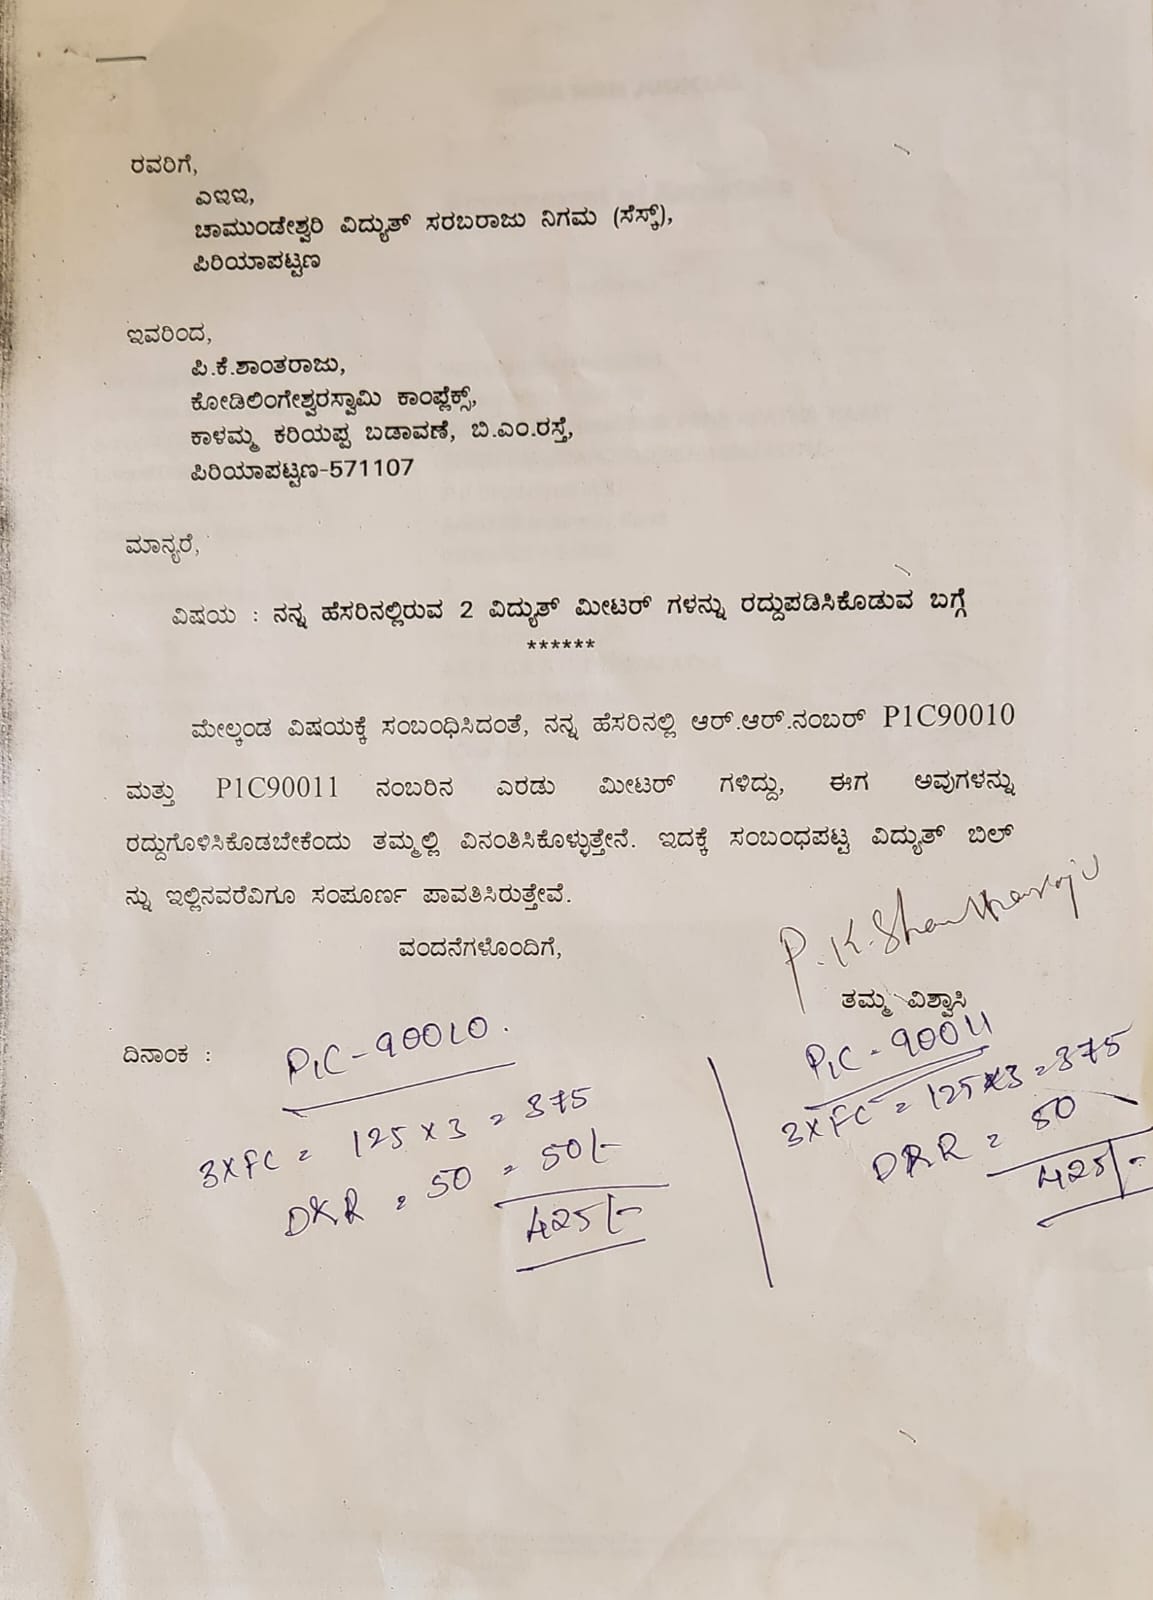 ರವರಿಗೆ,
ಎಇಇ,
ಚಾಮುಂಡೇಶ್ವರಿ ವಿದ್ಯುತ್ ಸರಬರಾಜು ನಿಗಮ (ಸೆಸ್ಕ್),
ಪಿರಿಯಾಪಟ್ಟಣ
ಇವರಿಂದ,
ಪಿ.ಕೆ.ಶಾಂತರಾಜು,
ಕೋಡಿಲಿಂಗೇಶ್ವರಸ್ವಾಮಿ ಕಾಂಪ್ಲೆಕ್ಸ್,
ಕಾಳಮ್ಮ ಕರಿಯಪ್ಪ ಬಡಾವಣೆ, ಬಿ.ಎಂ.ರಸ್ತೆ,
ಪಿರಿಯಾಪಟ್ಟಣ-571107
ಮಾನ್ಯರೆ,
ವಿಷಯ : ನನ್ನ ಹೆಸರಿನಲ್ಲಿರುವ 2 ವಿದ್ಯುತ್ ಮೀಟರ್ ಗಳನ್ನು ರದ್ದುಪಡಿಸಿಕೊಡುವ ಬಗ್ಗೆ
******
ಮೇಲ್ಕಂಡ ವಿಷಯಕ್ಕೆ ಸಂಬಂಧಿಸಿದಂತೆ, ನನ್ನ ಹೆಸರಿನಲ್ಲಿ ಆರ್.ಆರ್.ನಂಬರ್ P1C90010
ಮತ್ತು P1C90011 ನಂಬರಿನ ಎರಡು ಮೀಟರ್ ಗಳಿದ್ದು, ಈಗ ಅವುಗಳನ್ನು
ರದ್ದುಗೊಳಿಸಿಕೊಡಬೇಕೆಂದು ತಮ್ಮಲ್ಲಿ ವಿನಂತಿಸಿಕೊಳ್ಳುತ್ತೇನೆ. ಇದಕ್ಕೆ ಸಂಬಂಧಪಟ್ಟ ವಿದ್ಯುತ್ ಬಿಲ್
ನ್ನು ಇಲ್ಲಿನವರೆವಿಗೂ ಸಂಪೂರ್ಣ ಪಾವತಿಸಿರುತ್ತೇವೆ.
ವಂದನೆಗಳೊಂದಿಗೆ,
P. K. Shantharaju
ತಮ್ಮ ವಿಶ್ವಾಸಿ
ದಿನಾಂಕ :
P1C - 90010.
3XFC = 125 x 3 = 375
DRR = 50 = 50/-
425/-
P1C - 90011
3XFC = 125x3 = 375
DRR = 50
425/-